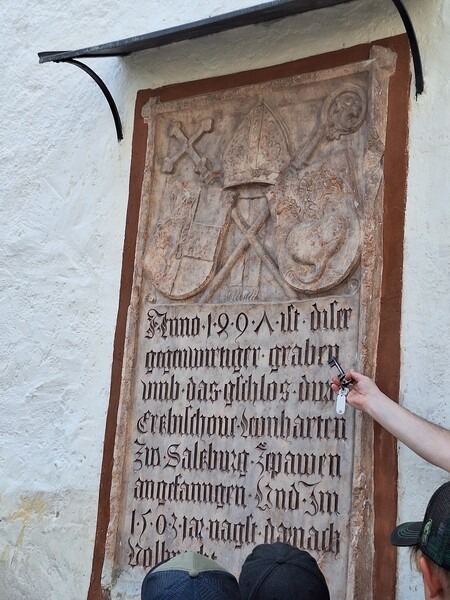 Anno · 1 · 8 · 9 · Λ · ist · diser
gegenwirtiger · graben
vmb · das · gschlos · dur
Ertzbischoue · Leonharten
zw · Saltzburg · Zepawen
angefanngen · Und · Jm
1 · 5 · 0 · 2 · jar · nagst · darnach